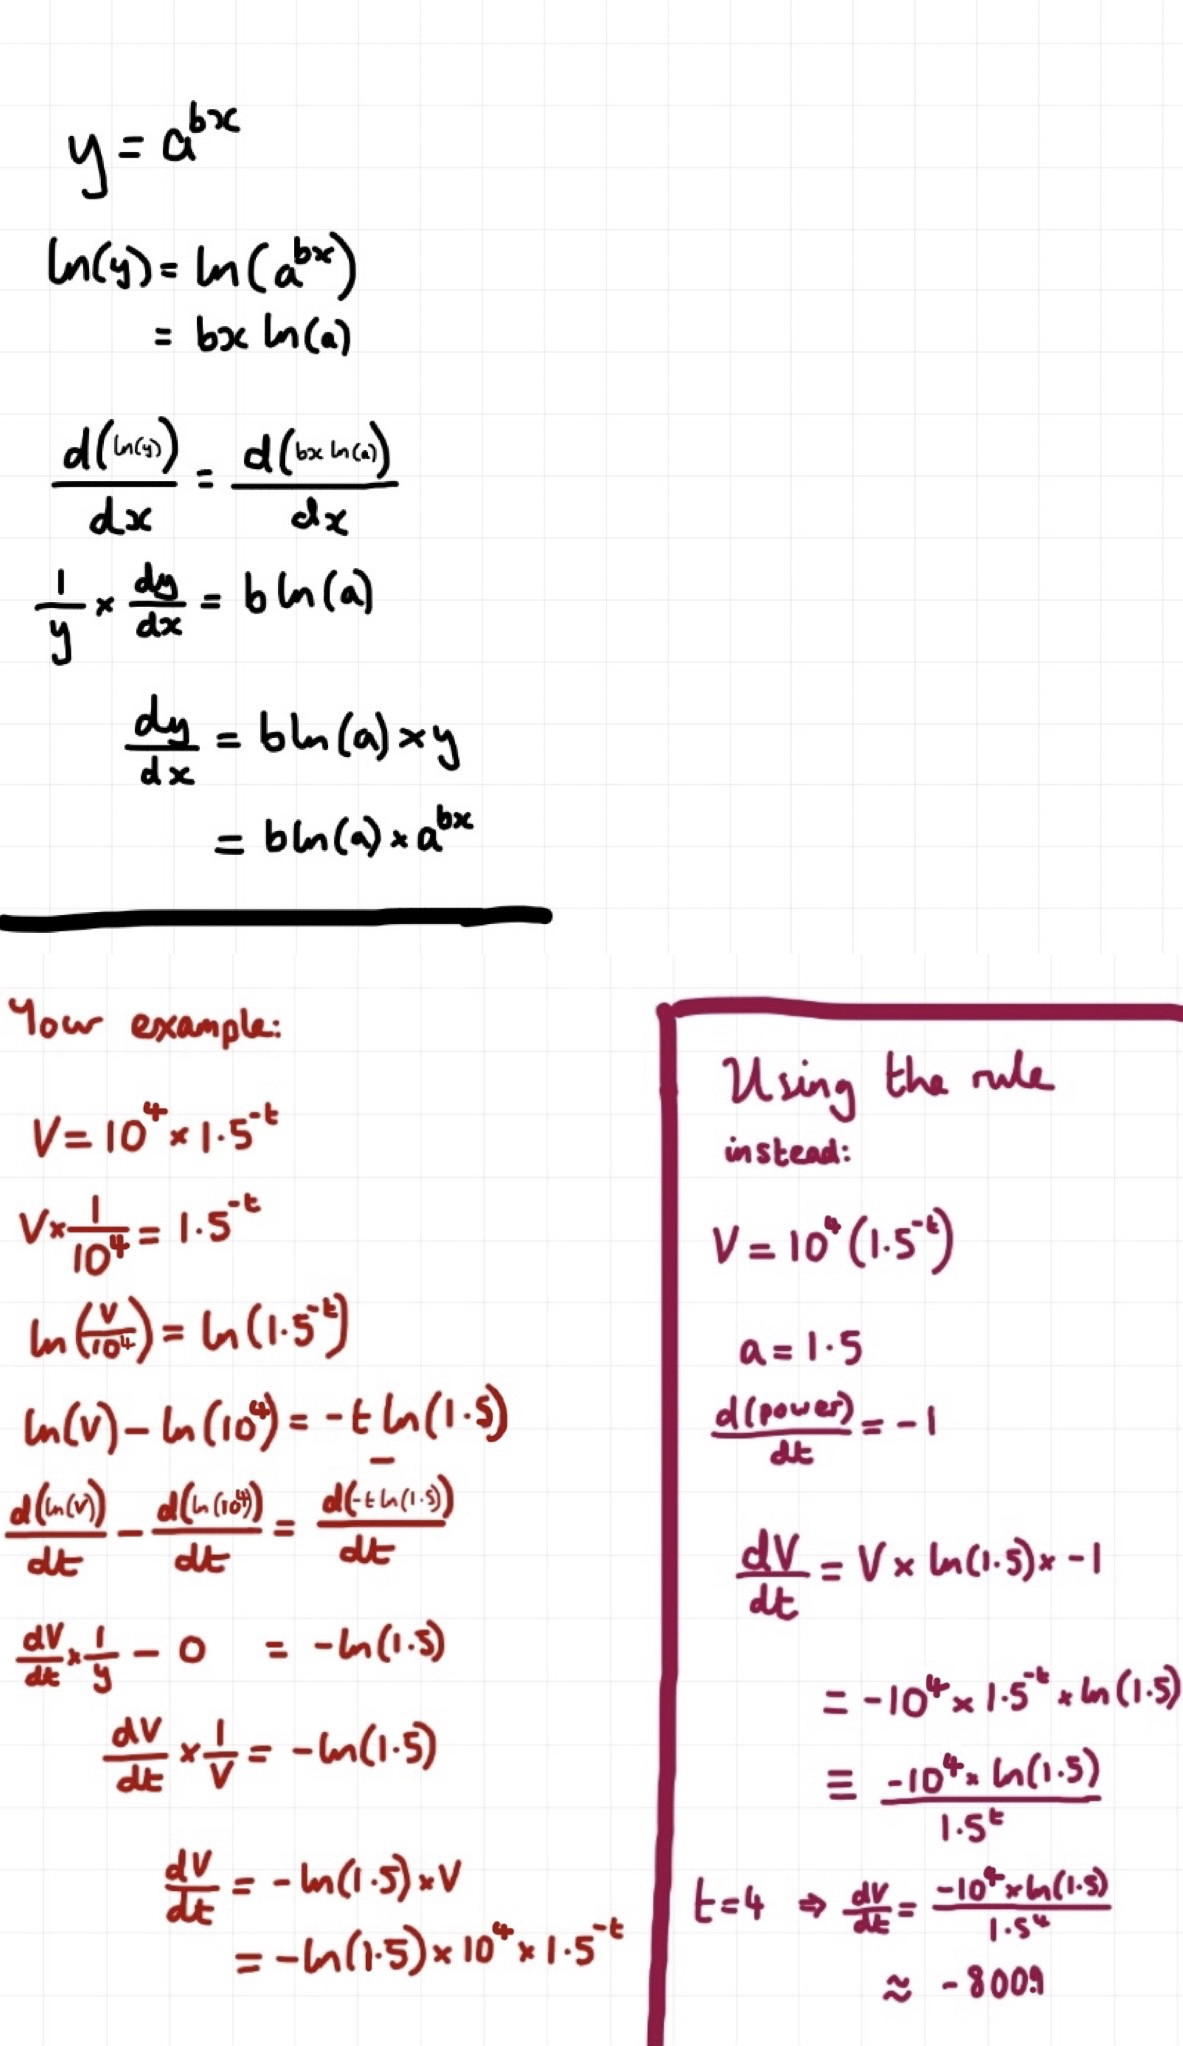 y = a^{bx}
ln(y) = ln(a^{bx})
= bx ln(a)
d(ln(y))/dx = d(bx ln(a))/dx
1/y × dy/dx = b ln(a)
dy/dx = b ln(a) × y
= b ln(a) × a^{bx}
Your example:
V = 10^4 × 1.5^{-t}
V × 1/10^4 = 1.5^{-t}
ln(V/10^4) = ln(1.5^{-t})
ln(V) − ln(10^4) = -t ln(1.5)
d(ln(V))/dt − d(ln(10^4))/dt = d(-t ln(1.5))/dt
dV/dt × 1/y − 0 = -ln(1.5)
dV/dt × 1/V = -ln(1.5)
dV/dt = -ln(1.5) × V
= -ln(1.5) × 10^4 × 1.5^{-t}
Using the rule
instead:
V = 10^4 (1.5^{-t})
a = 1.5
d(power)/dt = -1
dV/dt = V × ln(1.5) × -1
= -10^4 × 1.5^{-t} × ln(1.5)
≡ -10^4 × ln(1.5)/1.5^t
t=4 ⇒ dV/dt = -10^4 × ln(1.5)/1.5^4
≈ -800.9